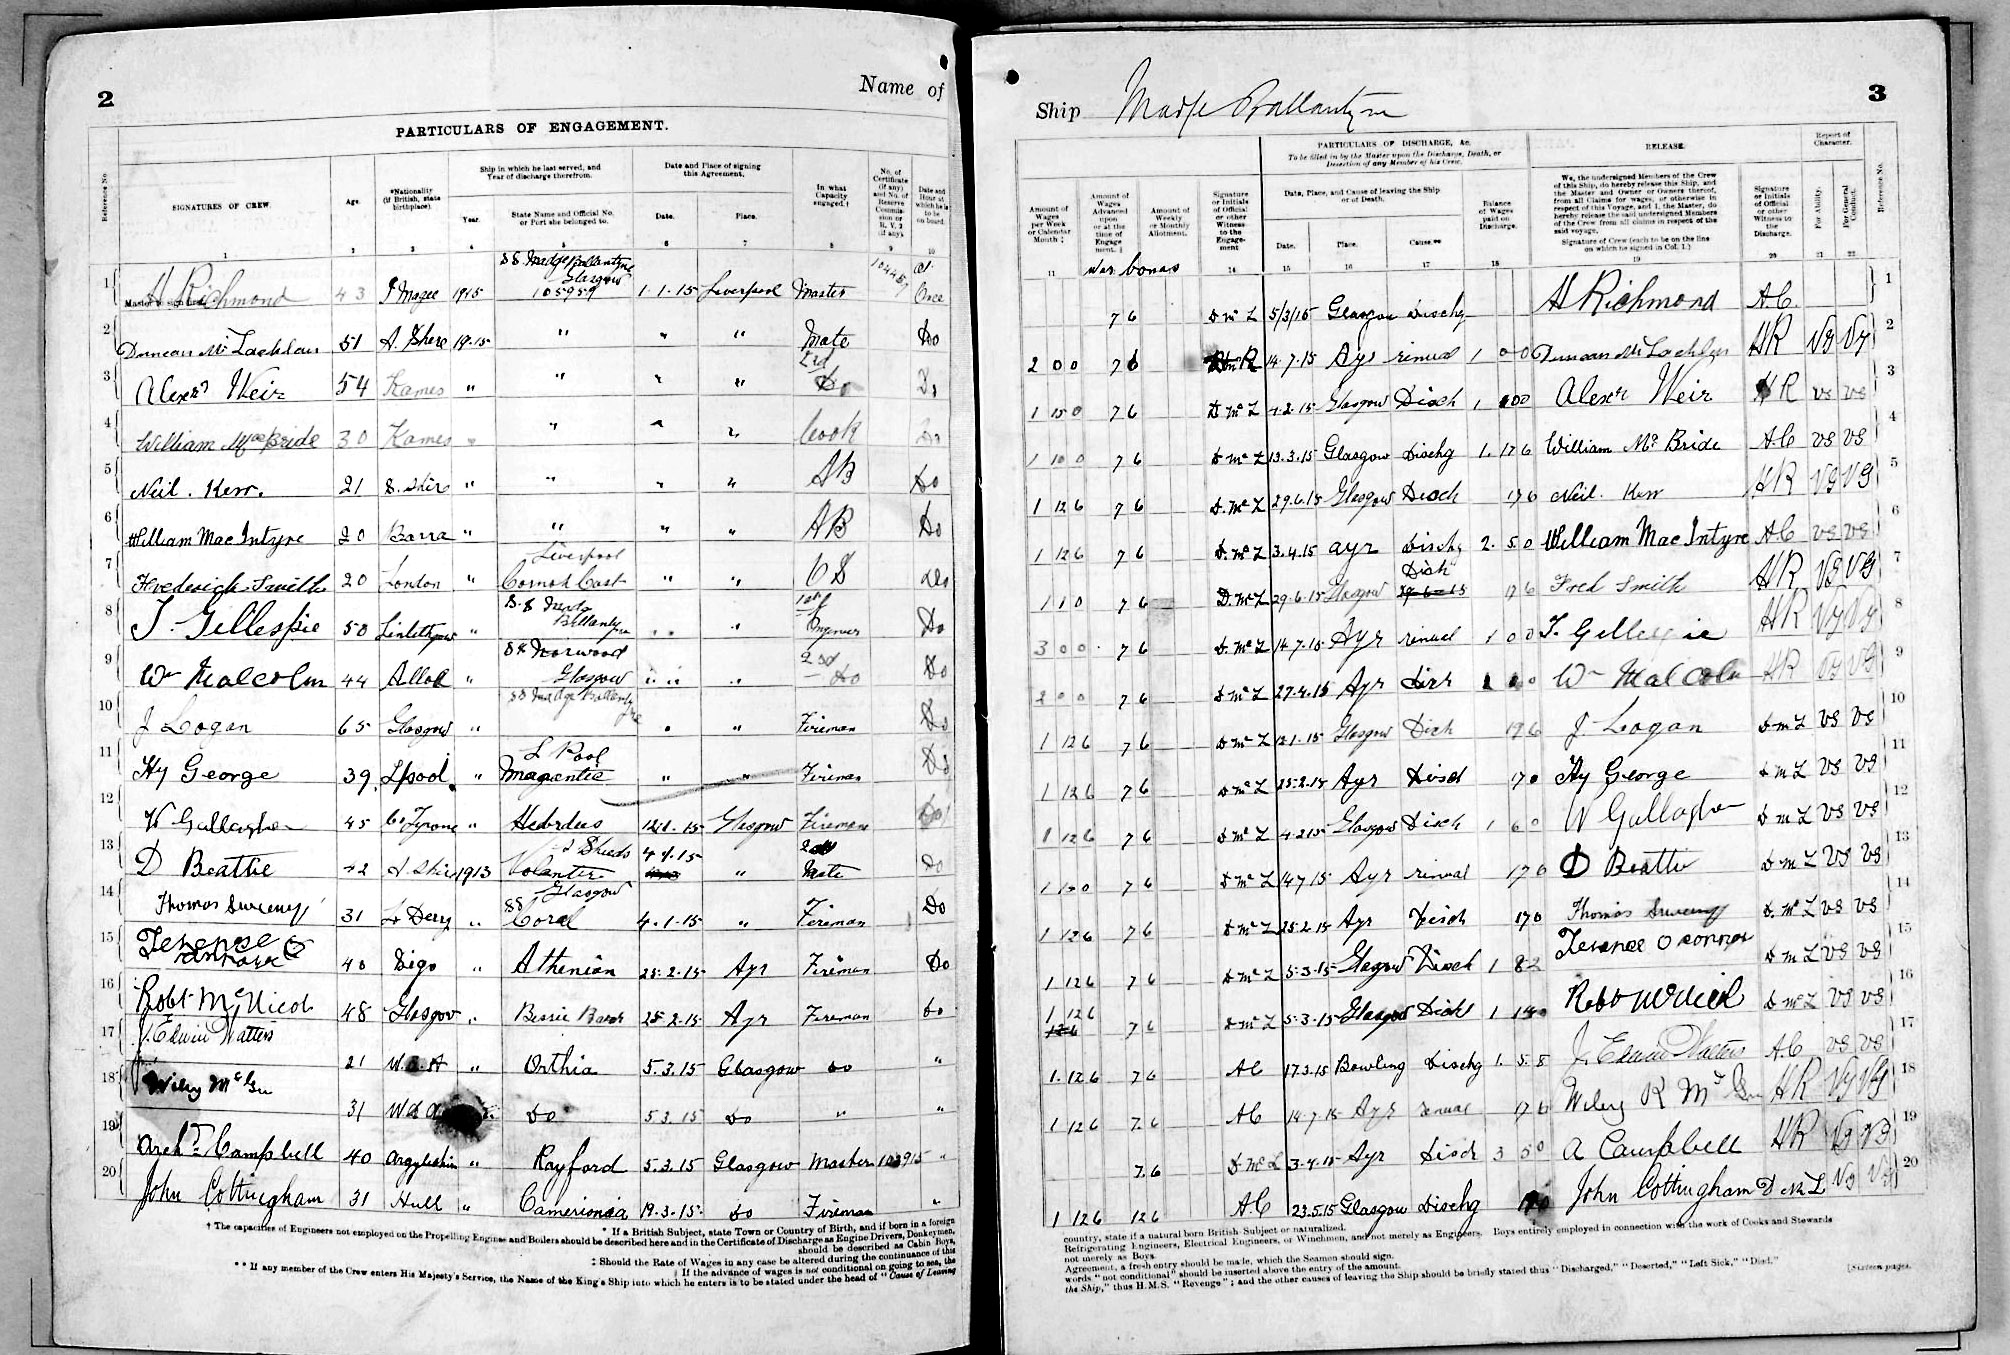 2
Name of
PARTICULARS OF ENGAGEMENT.
Reference No.
SIGNATURES OF CREW
Age.
*Nationality (if British, state birthplace).
Ship in which he last served, and Year of discharge therefrom.
Year.
State Name and Official No. or Port she belonged to.
Date and Place of signing this Agreement.
Date.
Place.
In what Capacity engaged.†
No. of Certificate (if any) and No. of Reserve Commission or R. V. 2 (if any).
Date and Hour at which he is to be on board.
1 2 3 4 5 6 7 8 9 10
1 Master to sign first H Richmond 43 I Magee 1915 SS. Madge Ballantyne Glasgow 105959 1-1-15 Liverpool Master At Once
2 Duncan Mc Lachlan 51 A. Shire 1915 " " " Mate Do
3 Alexr Weir 54 Kames " " " " 2nd Do Do
4 William MacBride 30 Kames " " " " Cook Do
5 Neil. Kerr. 21 Shire " " " " AB Do
6 William MacIntyre 20 Barra " " " " AB Do
7 Frederick Smith 20 London " Liverpool Cornish Coast " " OS Do
8 T. Gillespie 50 Linlithgow " S.S Madge Ballantyne " " 1st Engineer Do
9 Wm Malcolm 44 Alloa " SS Norwood Glasgow " " 2nd Do Do
10 J Logan 65 Glasgow " SS Madge Ballantyne " " Fireman Do
11 Hy George 39 Lpool. " L Pool Magentic " " Fireman Do
12 W Gallagher 45 Co Tyrone " Hebrides 12.1.15 Glasgow Fireman Do
13 D Beattie 42 Shire 1913 Volanter 4.1.15 " 2nd Mate Do
14 Thomas Sweeney 31 Derry " Glasgow SS Coral 4.1.15 " Fireman Do
15 Terence O Connor 40 Sligo " Athenian 25.2.15 Ayr Fireman Do
16 Robt McNicol 48 Glasgow " Bessie 25.2.15 Ayr Fireman Do
17 J. Edwin Watters 21 " Orthia 5.3.15 Glasgow Do "
18 Wiley McGee 31 Do 5.3.15 Do " "
19 Archd Campbell 40 Argyleshire " Rayford 5.3.15 Glasgow Master "
20 John Cottingham 31 Hull " Cameronia 19.3.15 Do Fireman "
* If a British Subject, state Town or Country of Birth, and if born in a foreign
† The capacities of Engineers not employed on the Propelling Engines and Boilers should be described here and in the Certificate of Discharge as Engine Drivers, Donkeymen,
should be described as Cabin Boys,
‡ Should the Rate of Wages in any case be altered during the continuance of this
‖ If the advance of wages is not conditional on going to sea, the
** If any member of the Crew enters His Majesty's Service, the Name of the King's Ship into which he enters is to be stated under the head of "Cause of Leaving
Ship Madge Ballantyne
3
Amount of Wages per Week or Calendar Month ‡
Amount of Wages Advanced upon or at the time of Engagement. ‖
Amount of Weekly or Monthly Allotment.
Signature or Initials of Official or other Witness to the Engagement
PARTICULARS OF DISCHARGE, &c.
To be filled in by the Master upon the Discharge, Death, or Desertion of any Member of his Crew.
Date, Place, and Cause of leaving the Ship or of Death.
Date. Place. Cause.**
Balance of Wages paid on Discharge.
RELEASE.
We, the undersigned Members of the Crew of this Ship, do hereby release this Ship, and the Master and Owner or Owners thereof, from all Claims for wages, or otherwise in respect of this Voyage, and I, the Master, do hereby release the said undersigned Members of the Crew from all claims in respect of the said voyage.
Signature of Crew (each to be on the line on which he signed in Col. 1.)
Signature or Initials of Official or other Witness to the Discharge.
Report of Character.
For Ability.
For General Conduct.
Reference No.
11 14 15 16 17 18 19 20 21 22
War bonus
7 6 D Mc L 5/3/15 Glasgow Dischg H Richmond AC 1
2 0 0 7 6 HR 14.7.15 Ayr renual 1 0 0 Duncan Mc Lachlan HR VG VG 2
1 15 0 7 6 D Mc L 4.2.15 Glasgow Disch 1 Alexr Weir HR VG VG 3
1 10 0 7 6 D Mc L 13.3.15 Glasgow Dischg 1. 17 6 William Mc Bride AC VG VG 4
1 12 6 7 6 D. Mc L 29.6.15 Glasgow Disch 17 6 Neil. Kerr HR VG VG 5
1 12 6 7 6 D. Mc L 3.4.15 Ayr Dischg 2. 5. 0 William MacIntyre AC VG VG 6
1 1 0 7 6 D. Mc L 29.6.15 Glasgow Disch 17 6 Fred Smith HR VG VG 7
3 0 0 7 6 D. Mc L 14.7.15 Ayr renual 1 0 0 T. Gillespie HR VG VG 8
2 0 0 7 6 D Mc L 27.4.15 Ayr Disch Wm Malcolm HR VG VG 9
1 12 6 7 6 D Mc L 12.1.15 Glasgow Disch 17 6 J. Logan D Mc L VG VG 10
1 12 6 7 6 D Mc L 25.2.15 Ayr Disch 17 0 Hy George D Mc L VG VG 11
1 12 6 7 6 D Mc L 4.2.15 Glasgow Disch 1 6 0 W Gallagher D Mc L VG VG 12
1 15 0 7 6 D Mc L 14.7.15 Ayr renual 17 6 D Beattie D Mc L VG VG 13
1 12 6 7 6 D Mc L 25.2.15 Ayr Disch 17 0 Thomas Sweeney D. Mc L VG VG 14
1 12 6 7 6 D Mc L 5.3.15 Glasgow Disch 1 8 2 Terence O Connor D Mc L VG VG 15
1 12 6 7 6 D Mc L 5.3.15 Glasgow Disch 1 Robt McNicol D Mc L VG VG 16
1. 12 6 7 6 AC 17.3.15 Bowling Dischg 1. 5. 8 J. Edwin Watters AC VG VG 17
1 12 6 7 6 AC 14.7.15 Ayr renual 17 6 Wiley R McGee HR VG VG 18
7.6 D Mc L 3.4.15 Ayr Disch 3 5 0 A Campbell HR VG VG 19
1 12 6 12 6 A.C 23.5.15 Glasgow Dischg John Cottingham D Mc L VG VG 20
country, state if a natural born British Subject or naturalized.
Refrigerating Engineers, Electrical Engineers, or Winchmen, and not merely as Engineers. Boys entirely employed in connection with the work of Cooks and Stewards
not merely as Boys.
Agreement, a fresh entry should be made, which the Seamen should sign.
words "not conditional" should be inserted above the entry of the amount.
the Ship," thus H.M.S. "Revenge"; and the other causes of leaving the Ship should be briefly stated thus "Discharged," "Deserted," "Left Sick," "Died."
[Sixteen pages.